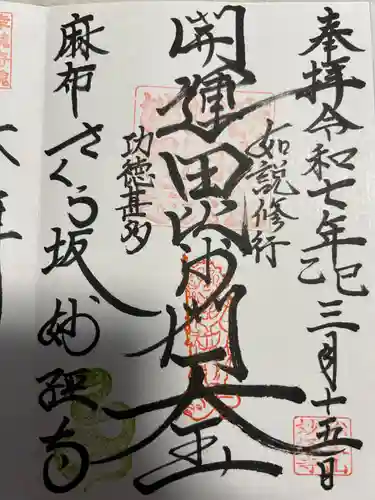 奉拝
令和七年乙巳三月十五日
如説修行
開運毘沙門天王
功徳甚多
麻布さくら坂妙経寺